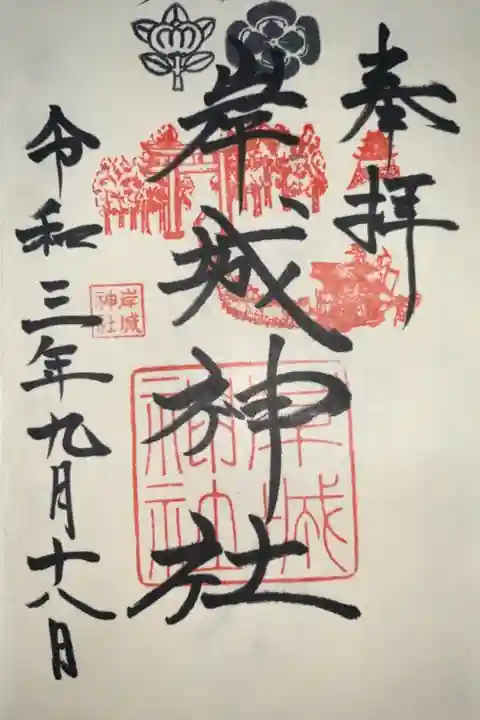 奉拝
岸城神社
岸城
神社
岸城
神社
令和三年九月十八日